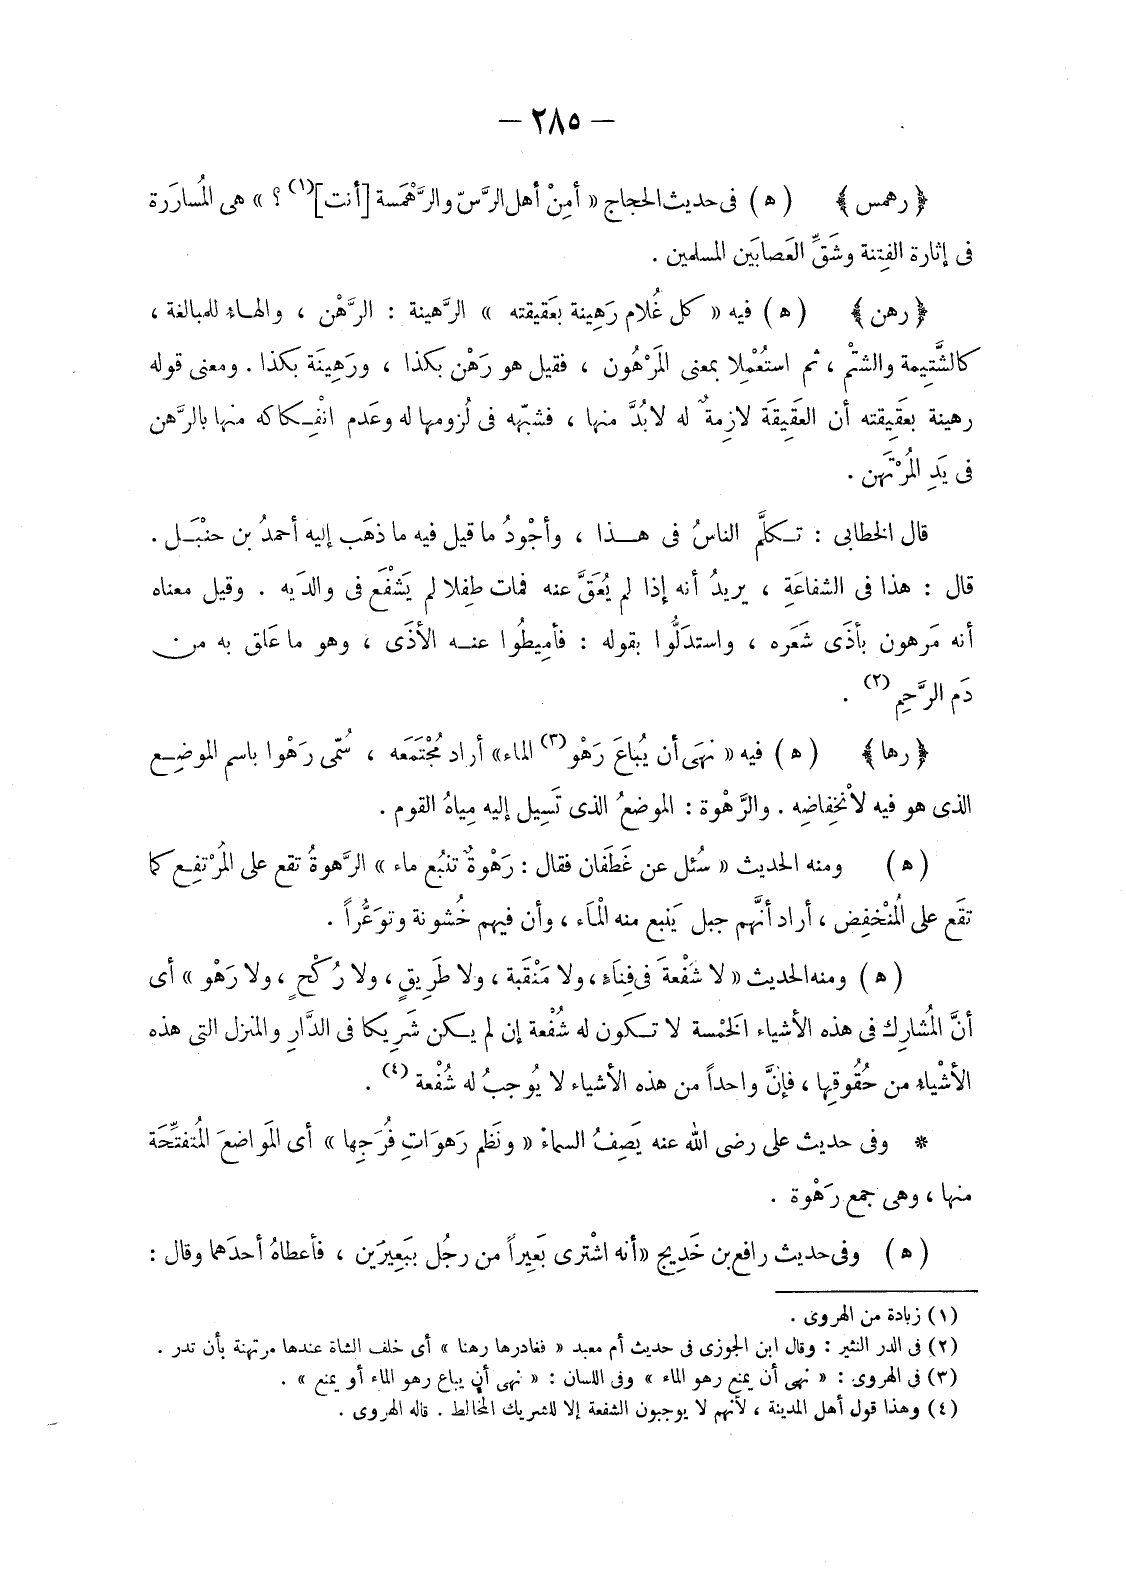 — ٢٨٥ —
﴿ رهمس ﴾ ( ه ) فى حديث الحجاج « أمِنْ أهل الرَّسّ والرَّهْمَسة [أنت](١) ؟ » هى المُسارَرة
فى إثارة الفِتنة وشَقِّ العَصابَين المسلمين .
﴿ رهن ﴾ ( ه ) فيه « كل غُلام رَهِينة بعَقيقته » الرَّهينة : الرَّهْن ، والهاء للمبالغة ،
كالشَّتِيمة والشتْم ، ثم استُعْمِلا بمعنى المَرْهُون ، فقيل هو رَهْن بكذا ، ورَهِينَة بكذا . ومعنى قوله
رهينة بعَقِيقته أن العَقِيقَة لازِمةٌ له لابُدَّ منها ، فشبّهه فى لُزومها له وعَدم انْفِكاكه منها بالرَّهن
فى يَدِ المُرْتَهن .
قال الخطابى : تكلَّم الناسُ فى هذا ، وأجْودُ ما قيل فيه ما ذهَب إليه أحمدُ بن حنْبَل .
قال : هذا فى الشفاعَةِ ، يريدُ أنه إذا لم يُعَقَّ عنه فمات طِفلا لم يَشْفَع فى والدَيه . وقيل معناه
أنه مَرهون بأذَى شَعَره ، واستدَلُّوا بقوله : فأمِيطُوا عنه الأذَى ، وهو ما عَلق به من
دَم الرَّحِم (٢) .
﴿ رها ﴾ ( ه ) فيه « نهَى أن يُباعَ رَهْو(٣) الماء» أراد مُجْتَمَعه ، سُمّى رَهْوا باسم الموضِع
الذى هو فيه لانْخِفاضِه . والرَّهْوة : الموضعُ الذى تَسِيل إليه مِياهُ القوم .
( ه ) ومنه الحديث « سُئل عن غَطَفان فقال : رَهْوةٌ تنبُع ماء » الرَّهوةُ تقع على المُرْتفِع كما
تقَع على المُنْخفِض ، أراد أنَّهم جبل يَنبع منه الْماَء ، وأن فيهم خُشونة وتوَعُّراً .
( ه ) ومنه الحديث « لا شُفْعةَ فى فِنَاءٍ ، ولا مَنْقبة ، ولا طَرِيقٍ ، ولا رُكْحٍ ، ولا رَهْو » أى
أنَّ المُشارِك فى هذه الأشياء الخَمْسة لا تكون له شُفْعة إن لم يكن شَرِيكا فى الدَّارِ والمنزل التى هذه
الأشْياء من حُقُوقِها ، فإنَّ واحداً من هذه الأشياء لا يُوجبُ له شُفْعة (٤) .
* وفى حديث على رضى الله عنه يَصِفُ السماءَ « ونَظَم رَهوَاتِ فُرَجِها » أى المَواضعَ المُتفتِّحَة
منها ، وهى جمع رَهْوة .
( ه ) وفى حديث رافع بن خَدِيج «أنه اشْترى بَعِيراً من رجُل ببَعِيرَين ، فأعطاهُ أحدَهما وقال :
(١) زيادة من الهروى .
(٢) فى الدر النثير : وقال ابن الجوزى فى حديث أم معبد « فغادرها رهنا » أى خلف الشاة عندها مرتهنة بأن تدر .
(٣) فى الهروى : « نهى أن يمنع رهو الماء » وفى اللسان : « نهى أن يباع رهو الماء أو يمنع » .
(٤) وهذا قول أهل المدينة ، لأنهم لا يوجبون الشفعة إلا للشريك المخالط . قاله الهروى .